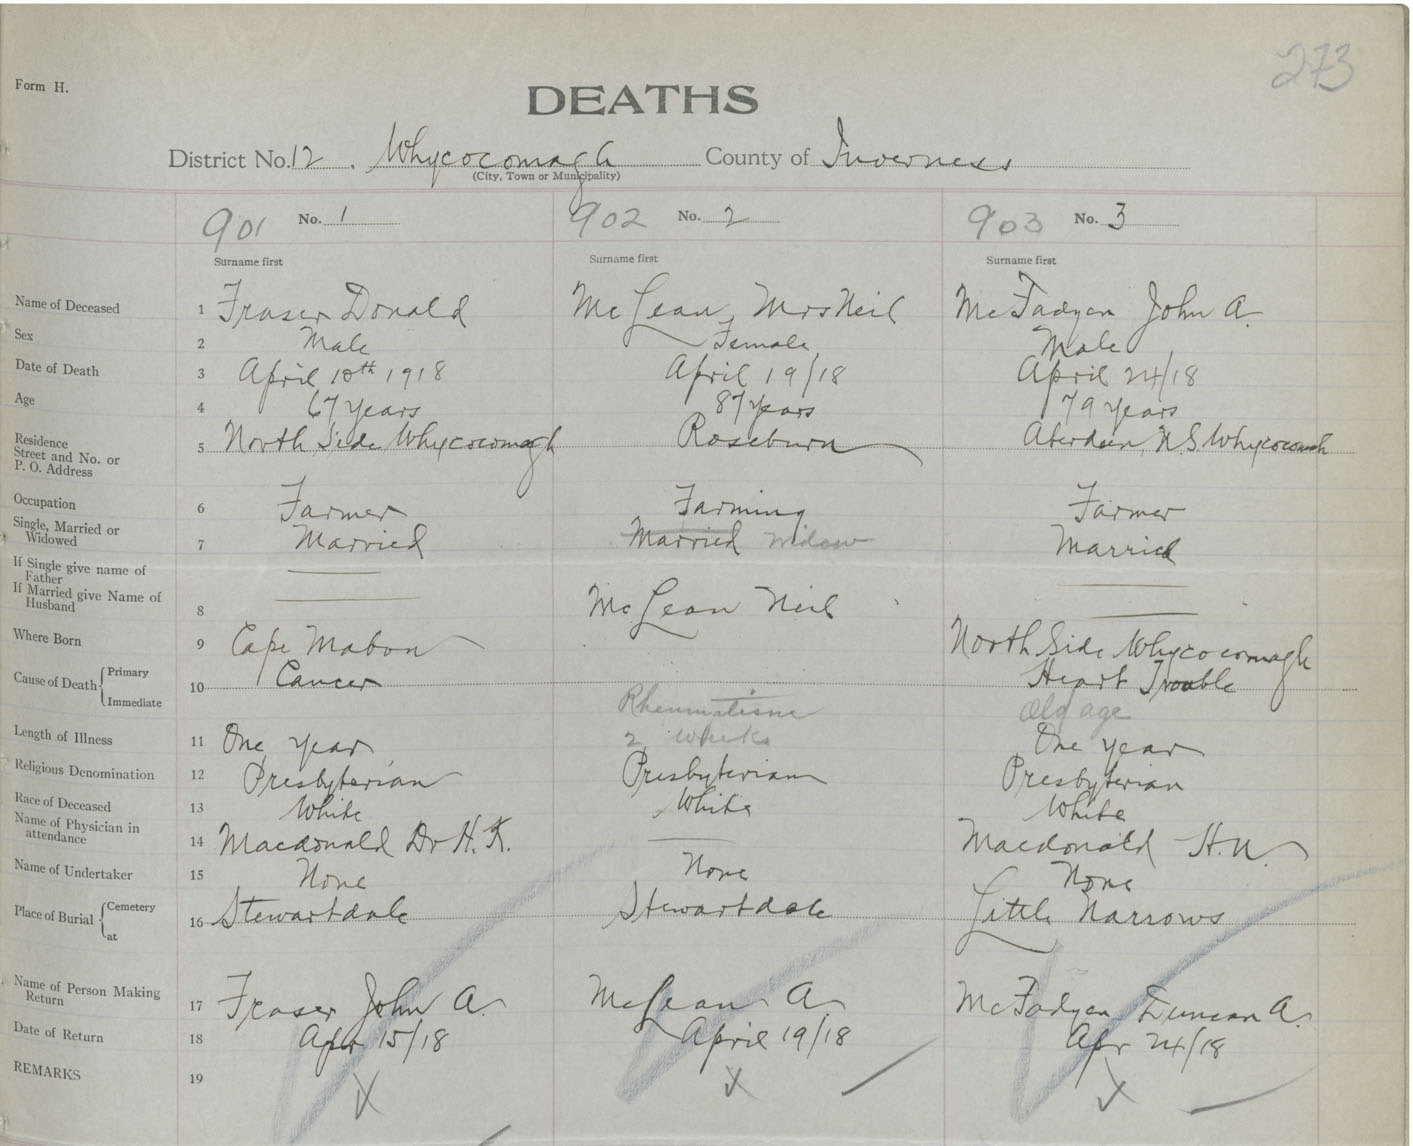 273
Form H.
DEATHS
District No. 12. Whycocomagh County of Inverness
(City, Town or Municipality)
901 No. 1 902 No. 2 903 No. 3
Surname first Surname first Surname first
Name of Deceased 1 Fraser Donald McLean, Mrs Neil McFadyen John A.
Sex 2 Male Female Male
Date of Death 3 April 10th 1918 April 19/18 April 24/18
Age 4 67 years 87 years 79 years
Residence
Street and No. or
P. O. Address 5 North Side Whycocomagh Roseburn Aberdeen, N.S. Whycocomagh
Occupation 6 Farmer Farming Farmer
Single, Married or
Widowed 7 Married Married Widow Married
If Single give name of
Father
If Married give Name of
Husband 8 McLean Neil
Where Born 9 Cape Mabou North Side Whycocomagh
Cause of Death Primary 10 Cancer Heart Trouble
Immediate Rheumatism Old age
Length of Illness 11 One year 2 weeks One year
Religious Denomination 12 Presbyterian Presbyterian Presbyterian
Race of Deceased 13 White White White
Name of Physician in
attendance 14 Macdonald Dr H. K. Macdonald H.N.
Name of Undertaker 15 None None None
Place of Burial Cemetery 16 Stewartdale Stewartdale Little Narrows
at
Name of Person Making
Return 17 Fraser John A. McLean A. McFadyen Duncan A.
Date of Return 18 Apr 15/18 April 19/18 Apr 24/18
REMARKS 19 X X X